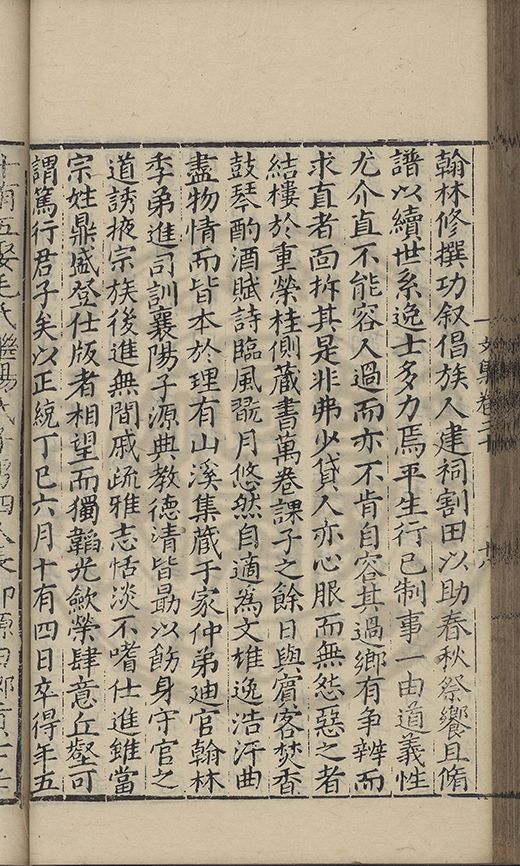 翰林修撰功叙倡族人建祠割田以助春秋祭饗且脩
譜以續世系逸士多力焉平生行己制事一由道義性
尤介直不能容人過而亦不肯自容其過鄉有爭辨而
求直者面折其是非弗少貸人亦心服而無怨惡之者
結樓於重榮桂側藏書萬卷課子之餘日與賓客焚香
鼓琴酌酒賦詩臨風翫月悠然自適為文雄逸浩汗曲
盡物情而皆本於理有山溪集藏于家仲弟迪官翰林
季弟進司訓襄陽子源典教德清皆勗以飭身守官之
道誘掖宗族後進無間戚疏雅志恬淡不嗜仕進錐當
宗姓鼎盛登仕版者相望而獨韜光歛榮肆意丘壑可
謂篤行君子矣以正統丁巳六月十有四日卒得年五